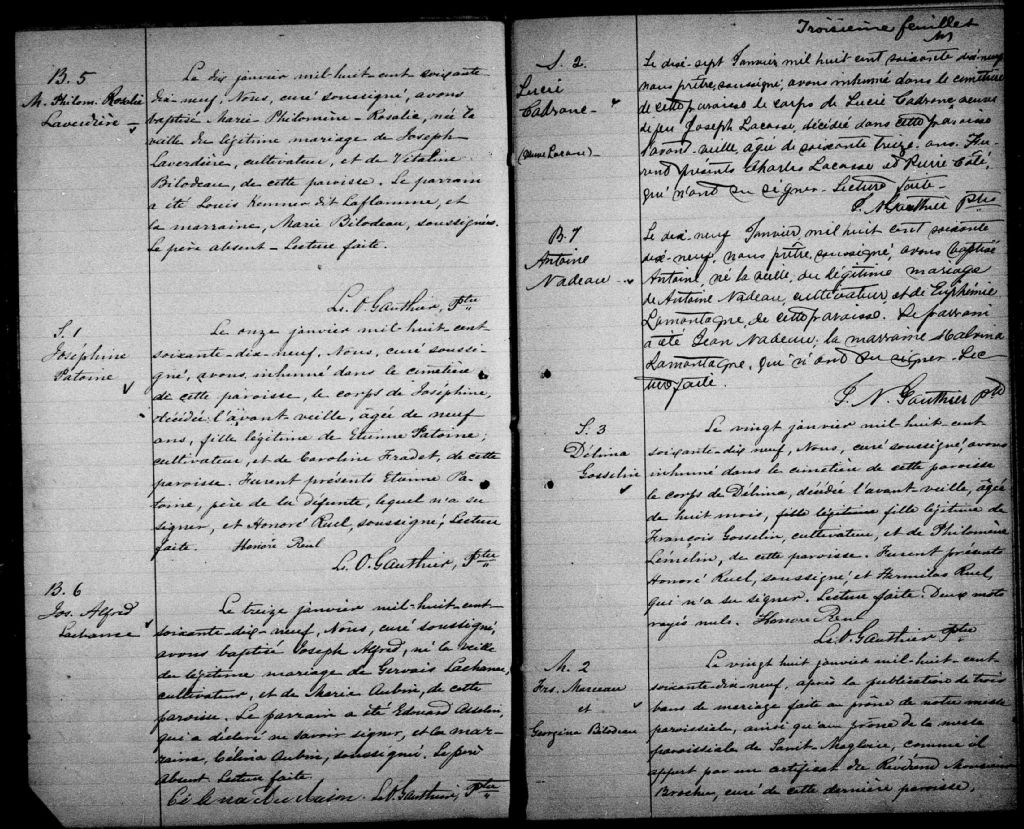 B. 5
M. Philom. Rosalie
Laverdière
Le dix janvier mil-huit-cent-soixante-
dix-neuf, Nous, curé soussigné, avons
baptisé Marie-Philomène-Rosalie, née la
veille du légitime mariage de Joseph
Laverdière, cultivateur, et de Vitaline
Bilodeau, de cette paroisse. Le parrain
a été Louis Kemner dit Laflamme, et
la marraine, Marie Bilodeau, soussignés.
Le père absent - Lecture faite.
Ls. O. Gauthier, Ptre
S. 1
Joséphine
Patoine
Le onze janvier mil-huit-cent
soixante-dix-neuf, Nous, curé soussi-
gné, avons inhumé dans le cimetière
de cette paroisse, le corps de Joséphine,
décédée l'avant-veille, âgée de neuf
ans, fille légitime de Etienne Patoine,
cultivateur, et de Caroline Fradet, de cette
paroisse. Furent présents Etienne Pa-
toine, père de la défunte, lequel n'a su
signer, et Honoré Ruel, soussigné; Lecture
faite. Honoré Reul
Ls. O. Gauthier, Ptre
B. 6
Jos. Alfred
Lachance
Le treize janvier mil-huit-cent-
soixante-dix-neuf, Nous, curé soussigné,
avons baptisé Joseph Alfred, né la veille
du légitime mariage de Gervais Lachance,
cultivateur, et de Marie Aubin, de cette
paroisse. Le parrain a été Edouard Asselin,
qui a déclaré ne savoir signer, et la mar-
raine, Célina Aubin, soussigné. Le père
absent Lecture faite.
Ls. O. Gauthier, Ptre
Troisième feuillet
S. 2.
Lucie
Cadrone
Le dix-sept Janvier mil huit cent soixante dix-neuf
nous prêtre soussigné, avons inhumé dans le cimetière
de cette paroisse le corps de Lucie Cadrone, veuve
de feu Joseph Lacasse, décédée dans cette paroisse
l'avant-veille, âgée de soixante treize ans. Fu-
rent présents Charles Lacasse et Pierre Côté,
qui n'ont su signer. Lecture faite.
J. N. Gauthier Ptre
B. 7
Antoine
Nadeau
Le dix-neuf Janvier mil huit cent soixante
dix-neuf, nous prêtre, soussigné, avons baptisé
Antoine, né la veille, du légitime mariage
de Antoine Nadeau, cultivateur, et de Euphémie
Lamontagne, de cette paroisse. Le parrain
a été Jean Nadeau; la marraine Malvina
Lamontagne, qui n'ont su signer. Lec-
ture faite.
J. N. Gauthier Ptre
S. 3
Délima
Gosselin
Le vingt janvier mil-huit-cent
soixante-dix neuf, Nous, curé soussigné, avons
inhumé dans le cimetière de cette paroisse
le corps de Délima, décédée l'avant-veille, âgée
de huit mois, fille légitime fille légitime de
François Gosselin, cultivateur, et de Philomène
Lemelin, de cette paroisse. Furent présents
Honoré Ruel, soussigné, et Hermilas Ruel,
qui n'a su signer. Lecture faite. Deux mots
rayés nuls. Honoré Reul
Ls. O. Gauthier Ptre
M. 2
Frs. Marceau
et
Georgina Bilodeau
Le vingt huit janvier mil-huit-cent-
soixante-dix-neuf, après la publication de trois
bans de mariage faite au prône de notre messe
paroissiale, ainsi qu'au prône de la messe
paroissiale de Saint-Magloire, comme il
appert par un certificat du Révérend Monsieur
Brochu, curé de cette dernière paroisse,